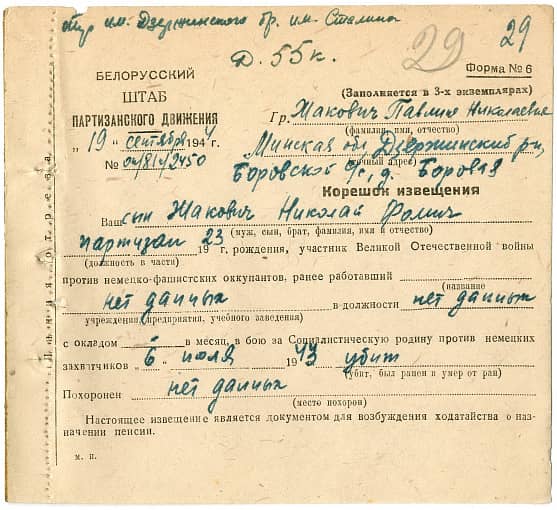 Отр им. Дзержинского бр. им. Сталина
Д. 55 к.
29 29
Форма № 6
БЕЛОРУССКИЙ
ШТАБ
ПАРТИЗАНСКОГО ДВИЖЕНИЯ
„19" сентября 1944 г.
№ 04/81/2450
(Заполняется в 3-х экземплярах)
Гр. Жакович Павлине Николаевне
(фамилия, имя, отчество)
Минская обл Дзержинский р-н,
(точный адрес)
Боровской с/с, д. Боровая
Корешок извещения
Ваш сын Жакович Николай Фомич
(муж, сын, брат, фамилия, имя и отчество)
партизан 23 19 г. рождения, участник Великой Отечественной войны
(должность в части)
против немецко-фашистских оккупантов, ранее работавший
(название
нет данных в должности нет данных
учреждения, предприятия, учебного заведения)
с окладом - в месяц, в бою за Социалистическую родину против немецких
захватчиков 6 июля 1943 убит
(убит, был ранен и умер от ран)
Похоронен нет данных
(место похорон)
Настоящее извещение является документом для возбуждения ходатайства о на-
значении пенсии.
м. п.